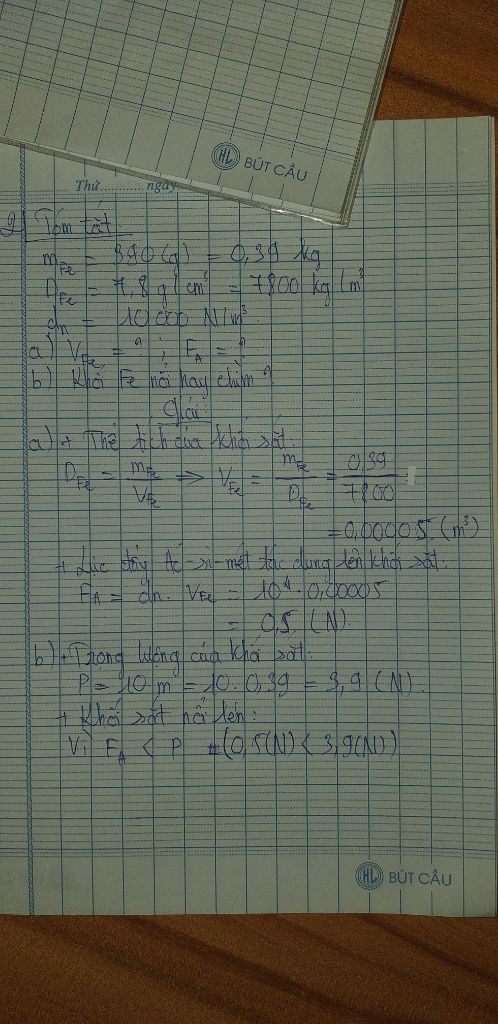 HL BÚT CẦU
Thứ.......... ngày
2 Tóm tắt
m_Fe = 390(g) = 0,39 kg
D_Fe = 7,8 g/cm³ = 7800 kg/m³
dn = 10000 N/m³
a) V_Fe = ? ; F_A = ?
b) Khối Fe nổi hay chìm ?
Giải:
a) + Thể tích của khối sắt.
D_Fe = m_Fe / V_Fe => V_Fe = m_Fe / D_Fe = 0,39 / 7800
= 0,00005 (m³)
+ Lực đẩy Ác-si-mét tác dụng lên khối sắt.
F_A = dn. V_Fe = 10⁴. 0,00005
= 0,5 (N)
b) + Trọng lượng của khối sắt.
P = 10 m = 10. 0,39 = 3,9 (N).
+ Khối sắt nổi lên:
Vì F_A < P (0,5(N) < 3,9(N))
HL BÚT CẦU